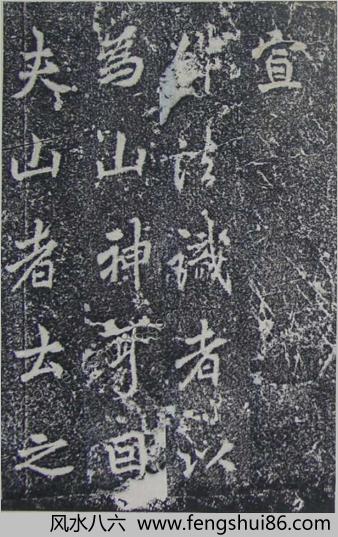 宣
法識者以
為山神
夫山者土之
风水八六 www.fengshui86.com